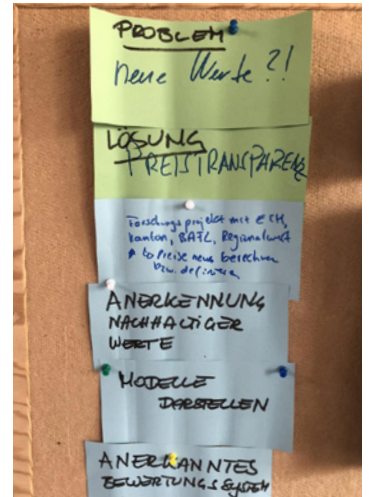 PROBLEM
neue Werte?!
LÖSUNG
PREISTRANSPARENZ
Forschungsprojekt mit
Kanton, Regionalwert
Preise neu berechnen
bzw. definieren
ANERKENNUNG
NACHHALTIGER
WERTE
MODELLE
DARSTELLEN
ANERKANNTES
BEWERTUNGSSYSTEM